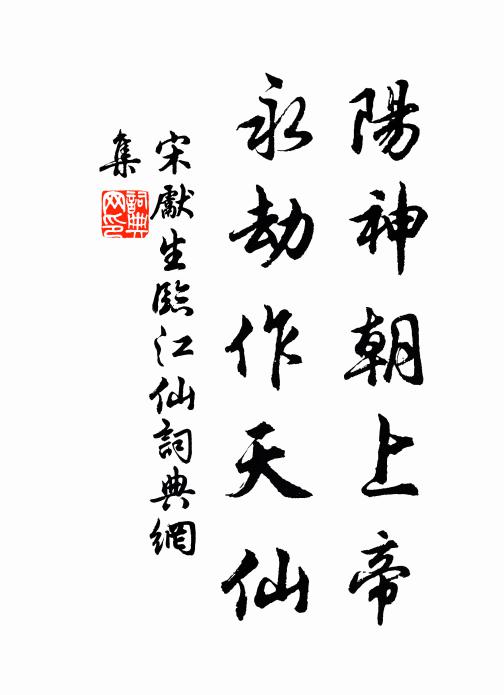 陽神朝上帝
永劫作天仙
宋獻生臨江仙詞典網
集
詞典网印